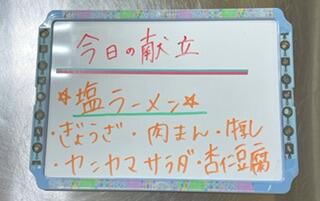 今日の献立
☆塩ラーメン☆
・ぎょうざ・肉まん・蒸し
・ヤシヤマサラダ・杏仁豆腐